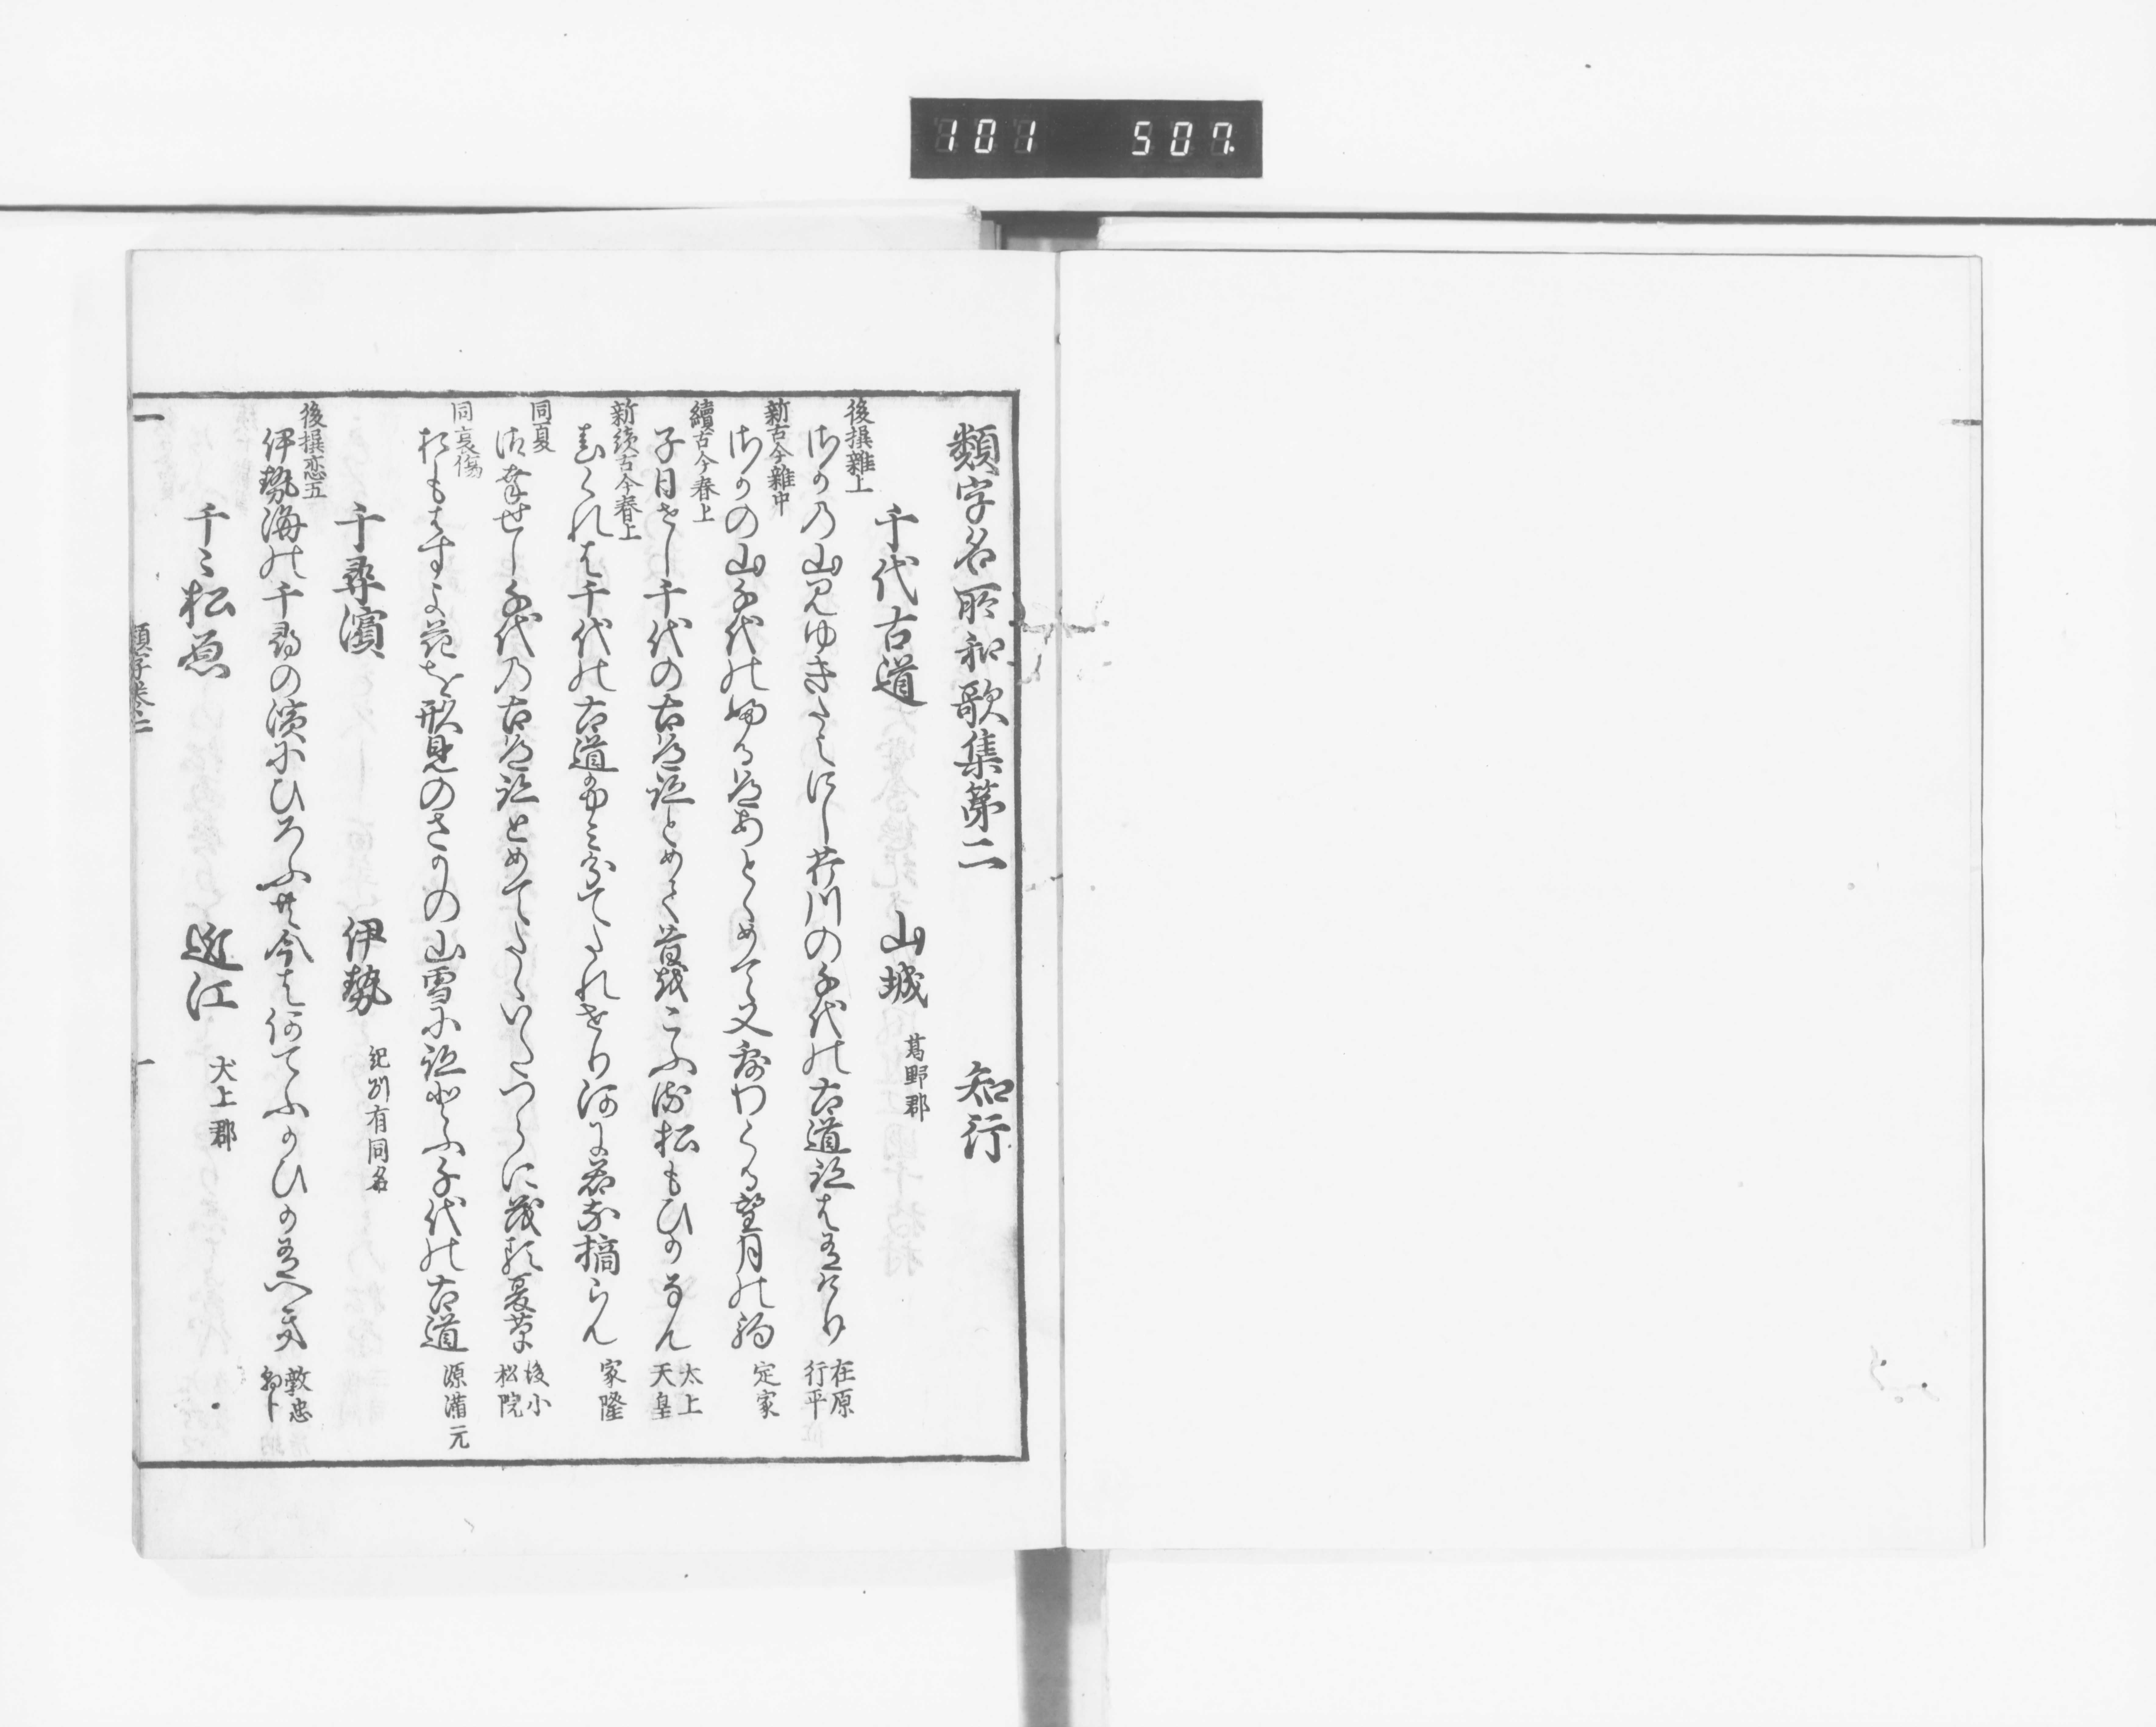 101 507
類字名所和歌集第二 知行
千代古道 山城 葛野郡
後撰雑上
さかの山みゆきたえにし芹川の千代の古道跡は有けり 在原行平
新古今雑中
さかの山千代のふる道あとゝめて又露わくる望月の駒 定家
續古今春上
子日せし千代の古道跡とめて昔を恋ふる松もひかなん 太上天皇
新続古今春上
千代の古道ふみ分てたれせり河に若菜摘らん 家隆
同夏
御幸せし千代の古道跡とめてたゝいたつらに茂る夏草 後小松院
同哀傷
花を形見のさかの山雪に跡とふ千代の古道 源満元
千尋濱 伊勢 紀州有同名
後撰恋五
伊勢海の千尋の濱にひろふ共今は何てふかひか有へき 敦忠
千々松原 近江 犬上郡
類字巻二 一